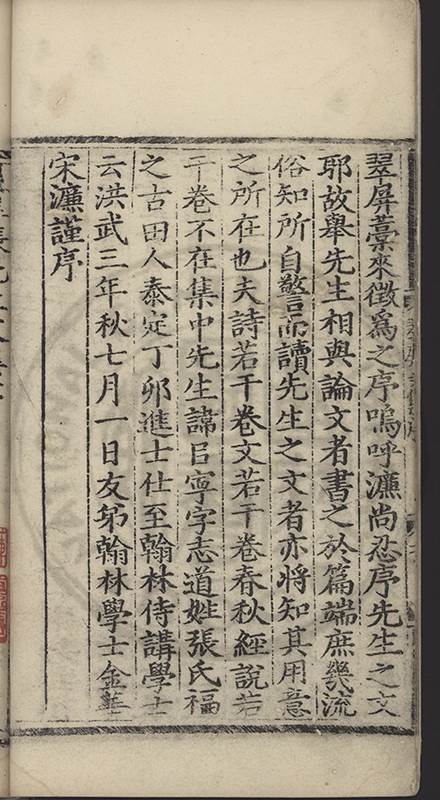 翠屏藁來徵爲之序嗚呼濂尚忍序先生之文
耶故舉先生相與論文者書之於篇端庶幾流
俗知所自警而讀先生之文者亦將知其用意
之所在也夫詩若干卷文若干卷春秋經說若
干卷不在集中先生諱㠯寧字志道姓張氏福
之古田人泰定丁卯進士仕至翰林侍講學士
云洪武三年秋七月一日友弟翰林學士金華
宋濂謹序